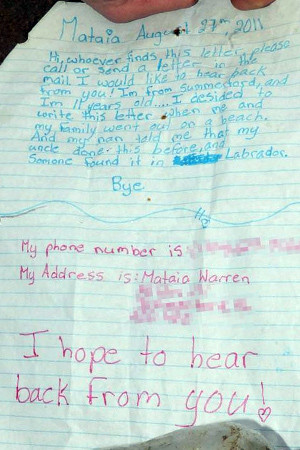 Mataia August 27th, 2011
Hi, whoever finds this letter please
call or send a letter in the
mail I would like to hear back
from you! Im from Summerford, and
Im 11 years old.... I desided to
write this letter when me and
my family went out on a beach.
And my nan told me that my
uncle done this before, and
Somone found it in Labrador.
Bye
My phone number is
My Address is: Mataia Warren
I hope to hear
back from you!